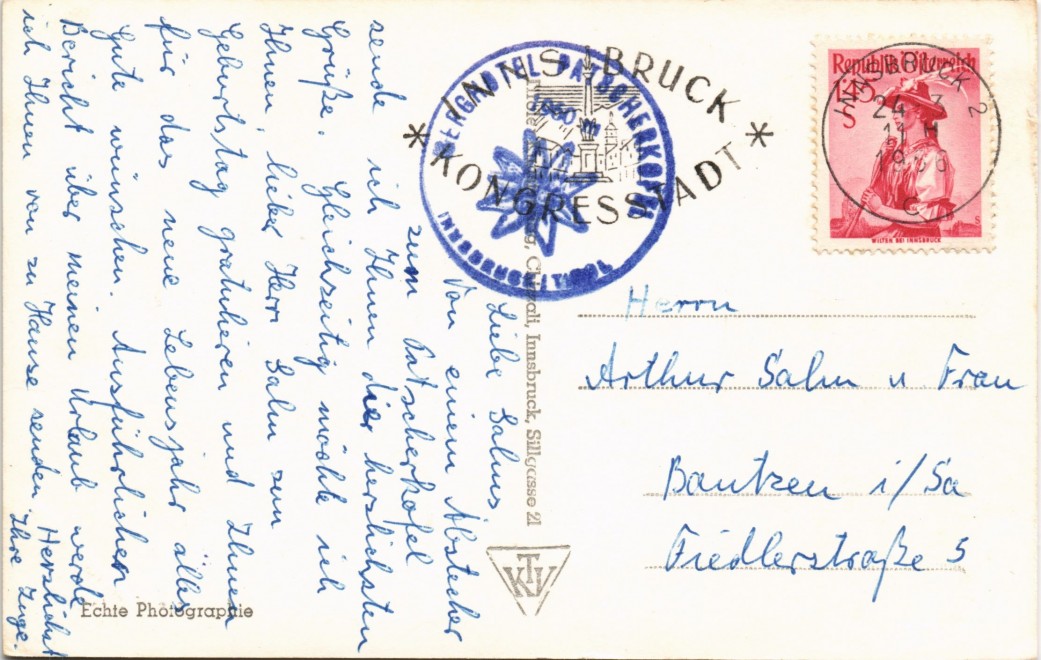 Liebe Salms
Von einem Abstecher
zum Patscherkofel
sende ich Ihnen die herzlichsten
Grüße. Gleichzeitig möchte ich
Ihnen, lieber Herr Salm zum
Geburtstag gratulieren und Ihnen
für das neue Lebensjahr alles
Gute wünschen. Ausführlichen
Bericht über meinen Urlaub werde
ich Ihnen von zu Hause senden.
Herzlichst
Ihre Inge.
Echte Photographie
Chizzali, Innsbruck, Sillgasse 21
KTV
BERGHOTEL PATSCHERKOFEL
1960 m
INNSBRUCK / TIROL
* INNSBRUCK *
KONGRESSTADT
Republik Österreich
1.45
S
WILTEN BEI INNSBRUCK
INNSBRUCK 2
24
11 H
c
Herrn
Arthur Salm u. Frau
Bautzen i/Sa
Fiedlerstraße 5